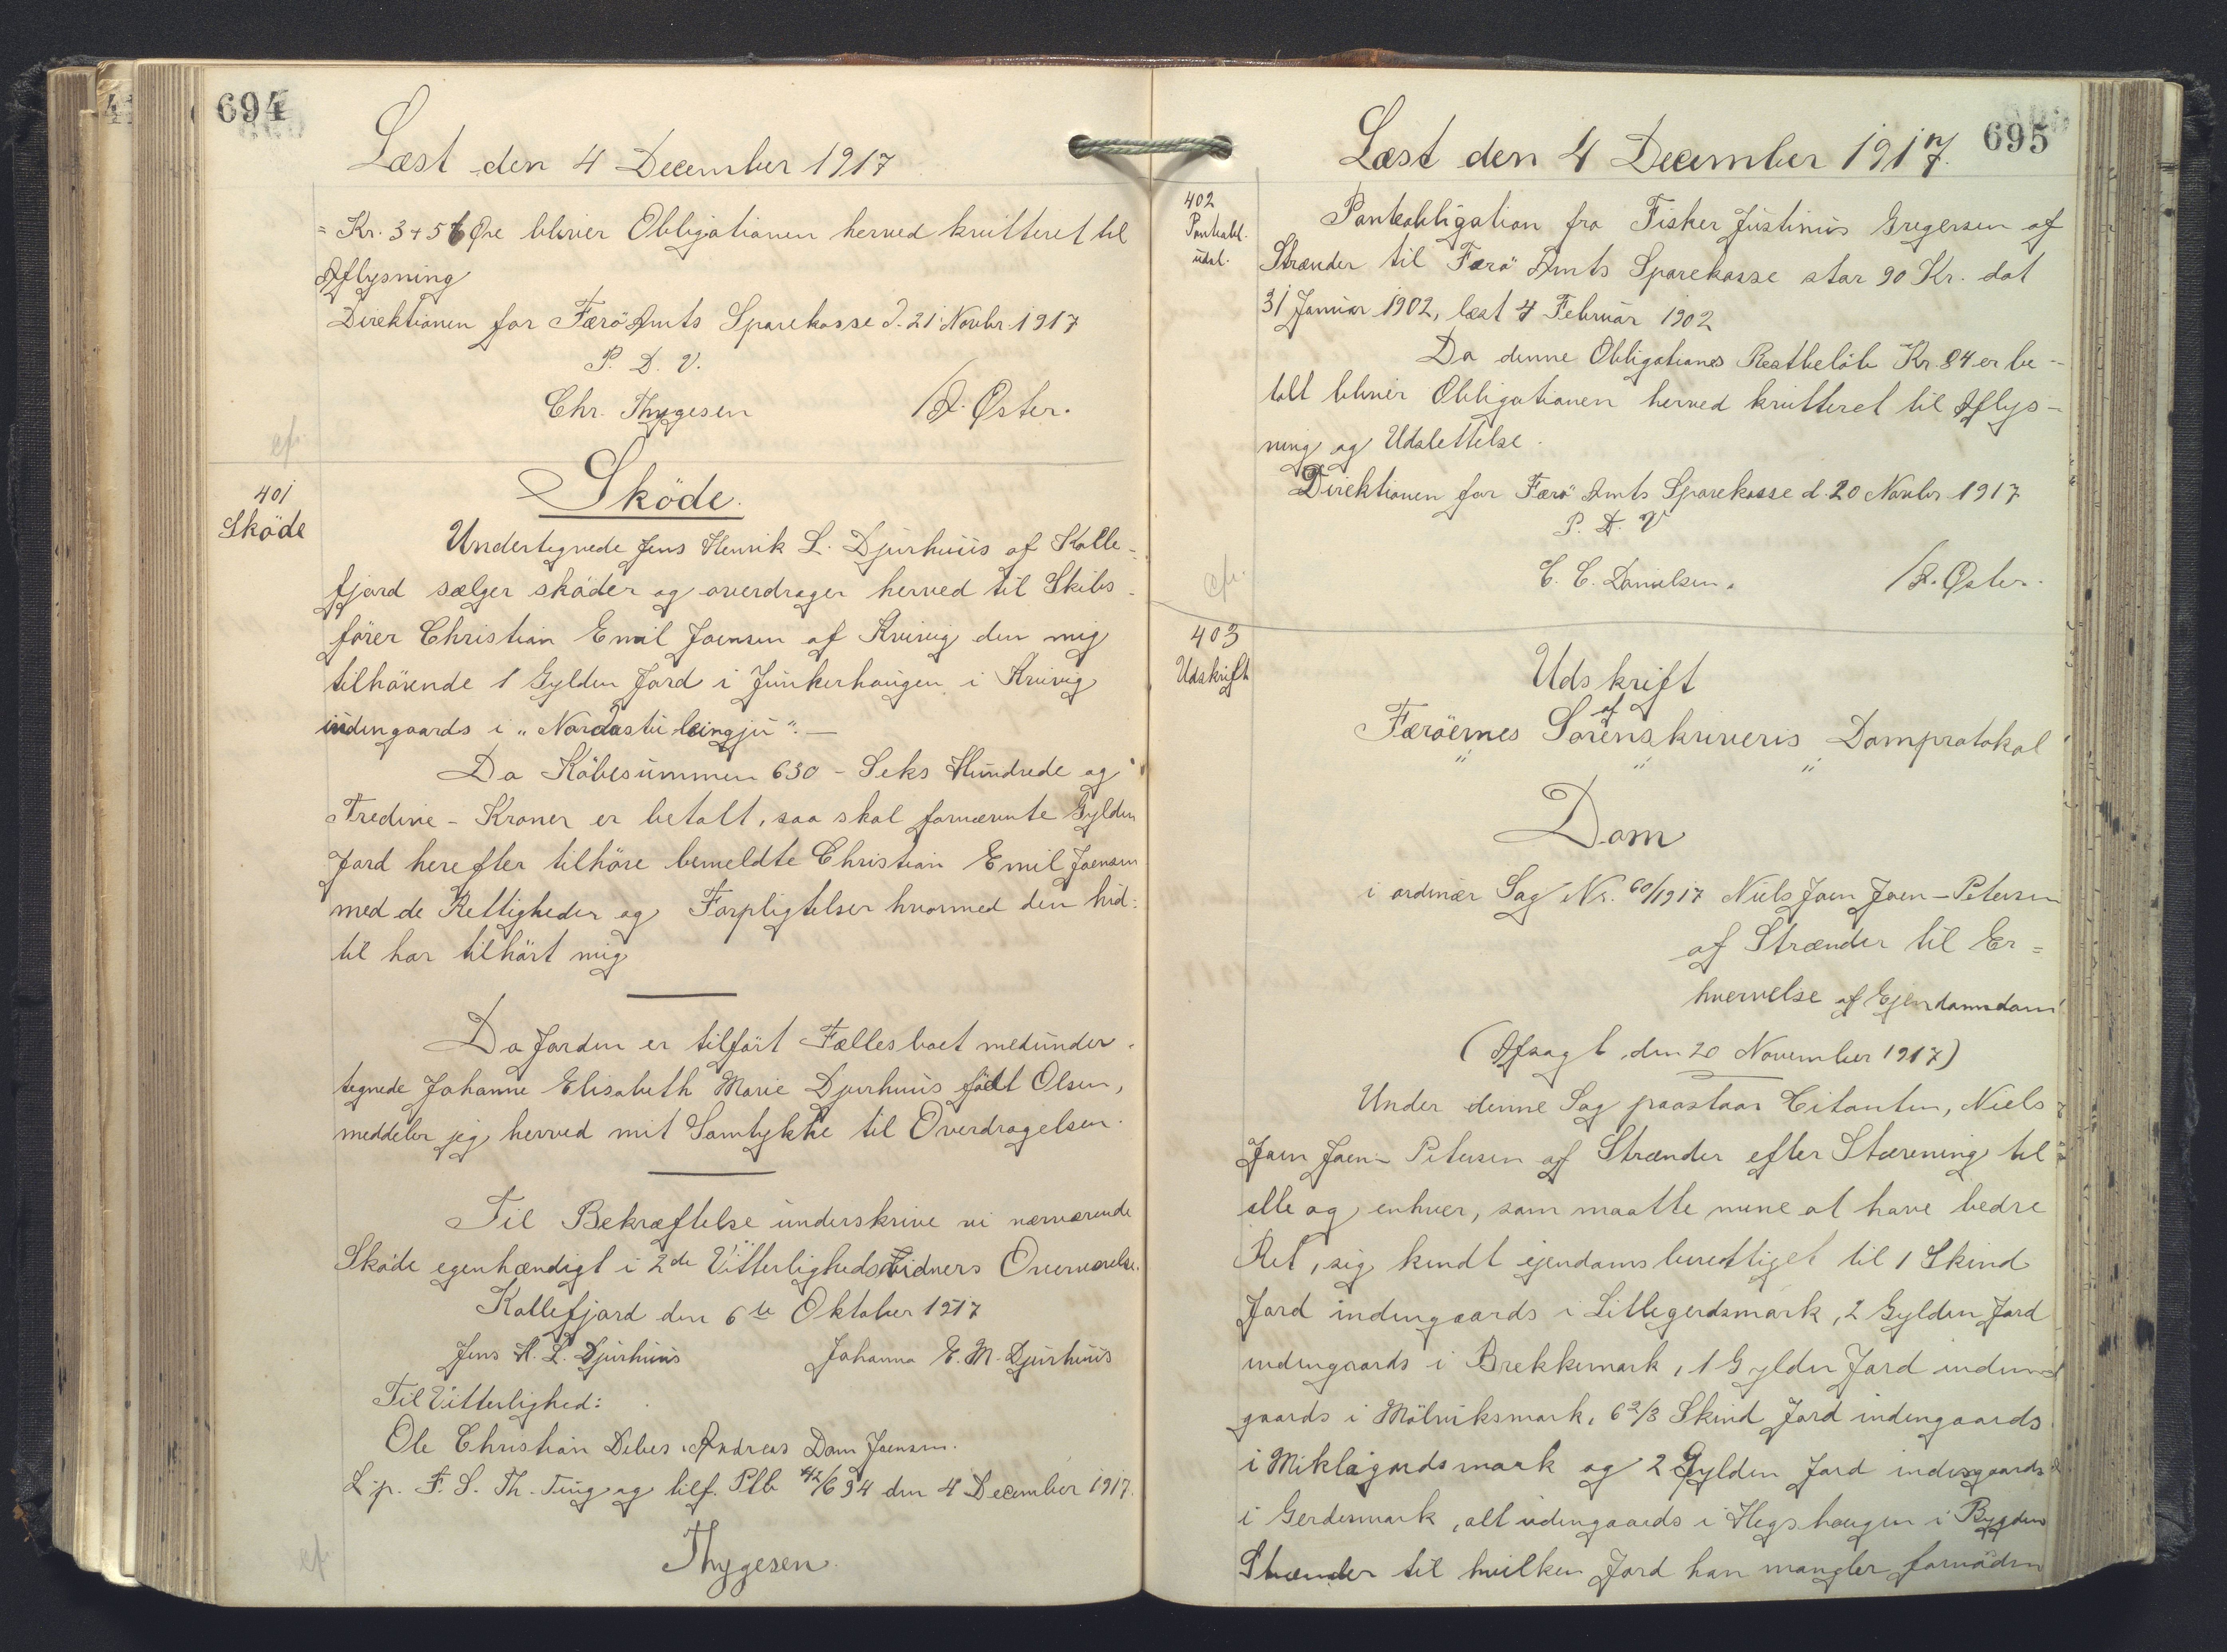 694
Læst den 4 December 1917
= Kr. 3 + 56 Øre bliver Obligationen herved kvitteret til
Aflysning
Direktionen for Færö Amts Sparekasse d. 21 Novbr. 1917
P. D. V.
Chr. Thygesen / Z. Øster.
cf.
401
Sköde
Sköde.
Undertegnede Jens Henrik L. Djurhuus af Kolle-
fjord sælger sköder og overdrager herved til Skibs-
fører Christian Emil Joensen af Kvivig den mig
tilhörende 1 Gylden Jord i Junkerhaugen i Kvivig
indengaards i „Nordastu leingju“. —
Da Köbesummen 630 - Seks Hundrede og
Tredive - Kroner er betalt, saa skal fornævnte Gylden
Jord herefter tilhöre bemeldte Christian Emil Joensen
med de Rettigheder og Forpligtelser hvormed den hid-
til har tilhört mig
Da Jorden er tilfört Fællesboet medunder-
tegnede Johanne Elisabeth Marie Djurhuus födt Olsen,
meddeler jeg herved mit Samtykke til Overdragelsen.
Til Bekræftelse underskrive vi nærværende
Sköde egenhændigt i 2de Vitterlighedsvidners Overværelse.
Kollefjord den 6te Oktober 1917
Jens H. L. Djurhuus Johanna E. M. Djurhuus
Til Vitterlighed:
Ole Christian Debes. Andreas Dam Joensen.
L. p. F. S. Th. Ting og tilf. Ptb 42/694 den 4 December 1917.
Thygesen.
cf.
695
Læst den 4 December 1917.
402
Pantobl.
udsl.
Pantobligation fra Fisker Justinus Gregersen af
Strænder til Færö Amts Sparekasse stor 90 Kr. dat
31 Januar 1902, læst 4 Februar 1902
Da denne Obligations Restbelöb Kr. 84 er be-
talt bliver Obligationen herved kvitteret til Aflys-
ning og Udslettelse.
Direktionen for Færö Amts Sparekasse d. 20 Novbr 1917
P. D. V
C. C. Danielsen. / Z. Øster.
cf.
403
Udskrift
Udskrift
af
Færöernes Sorenskriveris Domprotokol
Dom
i ordinær Sag Nr. 60/1917 Niels Joen Joen-Petersen
af Strænder til Er=
hvervelse af Ejendomsdom
(Afsagt den 20 November 1917)
Under denne Sag paastaar Citanten, Niels
Joen Joen-Petersen af Strænder efter Stævning til
alle og enhver, som maatte mene at have bedre
Ret, sig kendt ejendomsberettiget til 1 Skind
Jord indengaards i Littlegerdsmark, 2 Gylden Jord
indengaards i Brekkumark, 1 Gylden Jord inden-
gaards i Mölviksmark, 6 2/3 Skind Jord indengaards
i Miklagardsmark og 2 Gylden Jord indengaards
i Gerdismark, alt indengaards i Hegshaugen i Bygden
Strænder til hvilken Jord han mangler fornöden